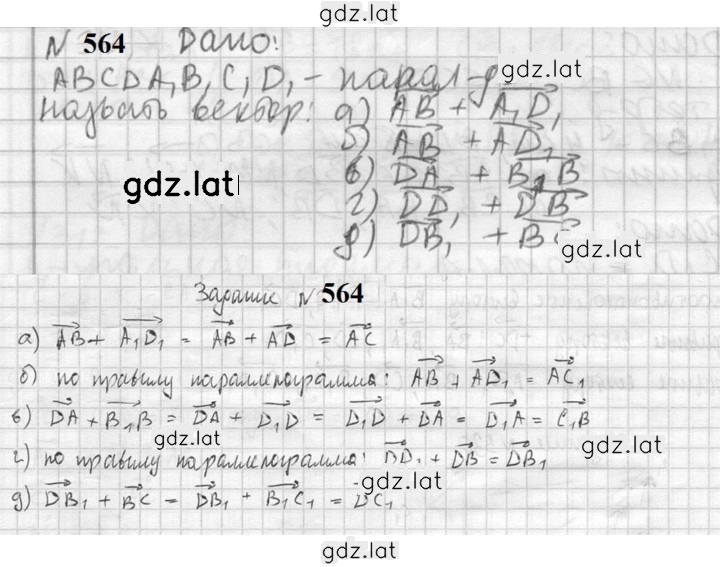 gdz.lat
N 564 Дано:
ABCDA₁B₁C₁D₁ - парал-д gdz.lat
назвать вектор: а) AB + A₁D₁
б) AB + AD₁
gdz.lat в) DA + B₁B
г) DD₁ + DB
д) DB₁ + BC gdz.lat
Задание N 564
а) AB + A₁D₁ = AB + AD = AC
б) по правилу параллелограмма: AB + AD₁ = AC₁
в) DA + B₁B = DA + D₁D = D₁D + DA = D₁A = C₁B
gdz.lat gdz.lat
г) по правилу параллелограмма: DD₁ + DB = DB₁
д) DB₁ + BC = DB₁ + B₁C₁ = DC₁ gdz.lat
gdz.lat